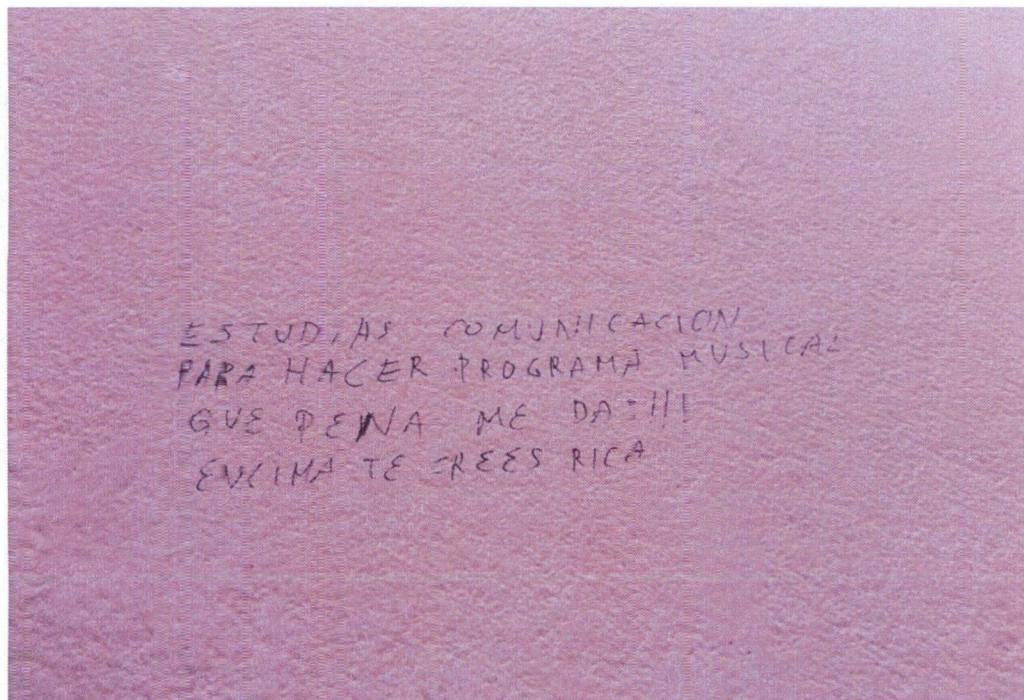 ESTUDIAS COMUNICACION
PARA HACER PROGRAMA MUSICAL
QUE PENA ME DA:!!!
ENCIMA TE CREES RICA